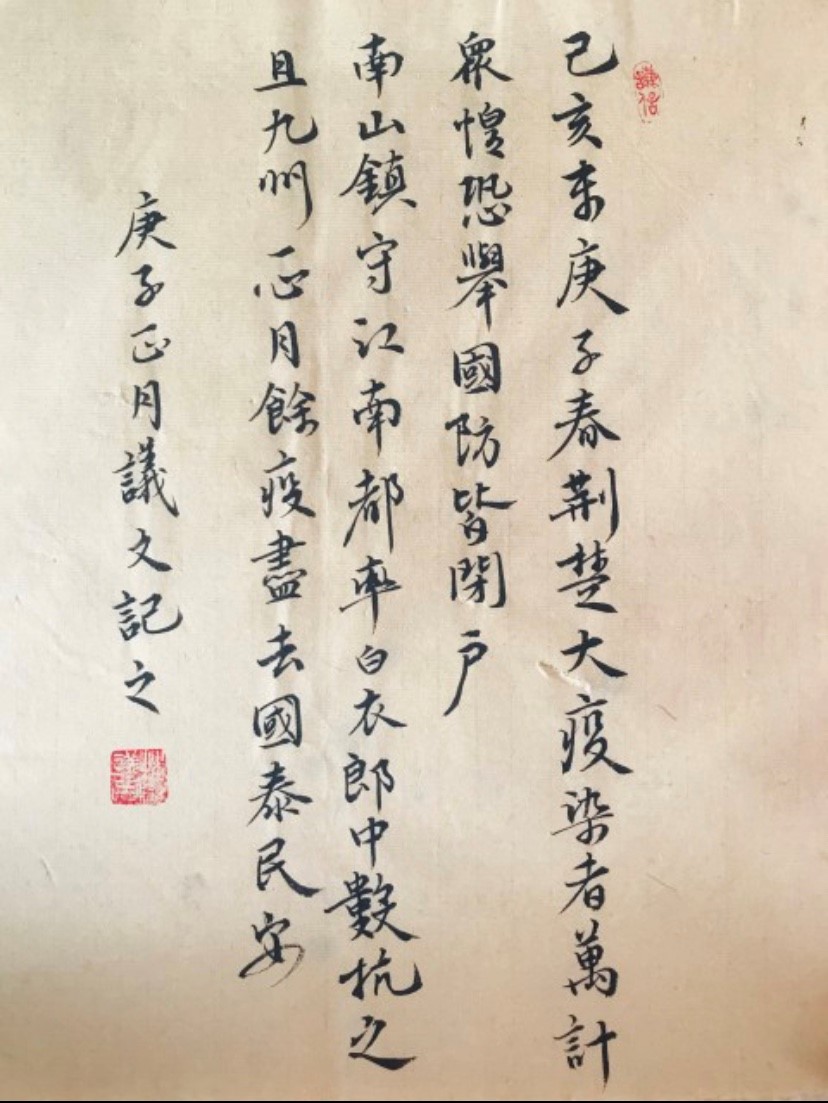 己亥末庚子春荊楚大疫染者萬計
眾惶恐舉國防皆閉戶
南山鎮守江南都率白衣郎中數抗之
且九州一心月餘疫盡去國泰民安
庚子正月議文記之